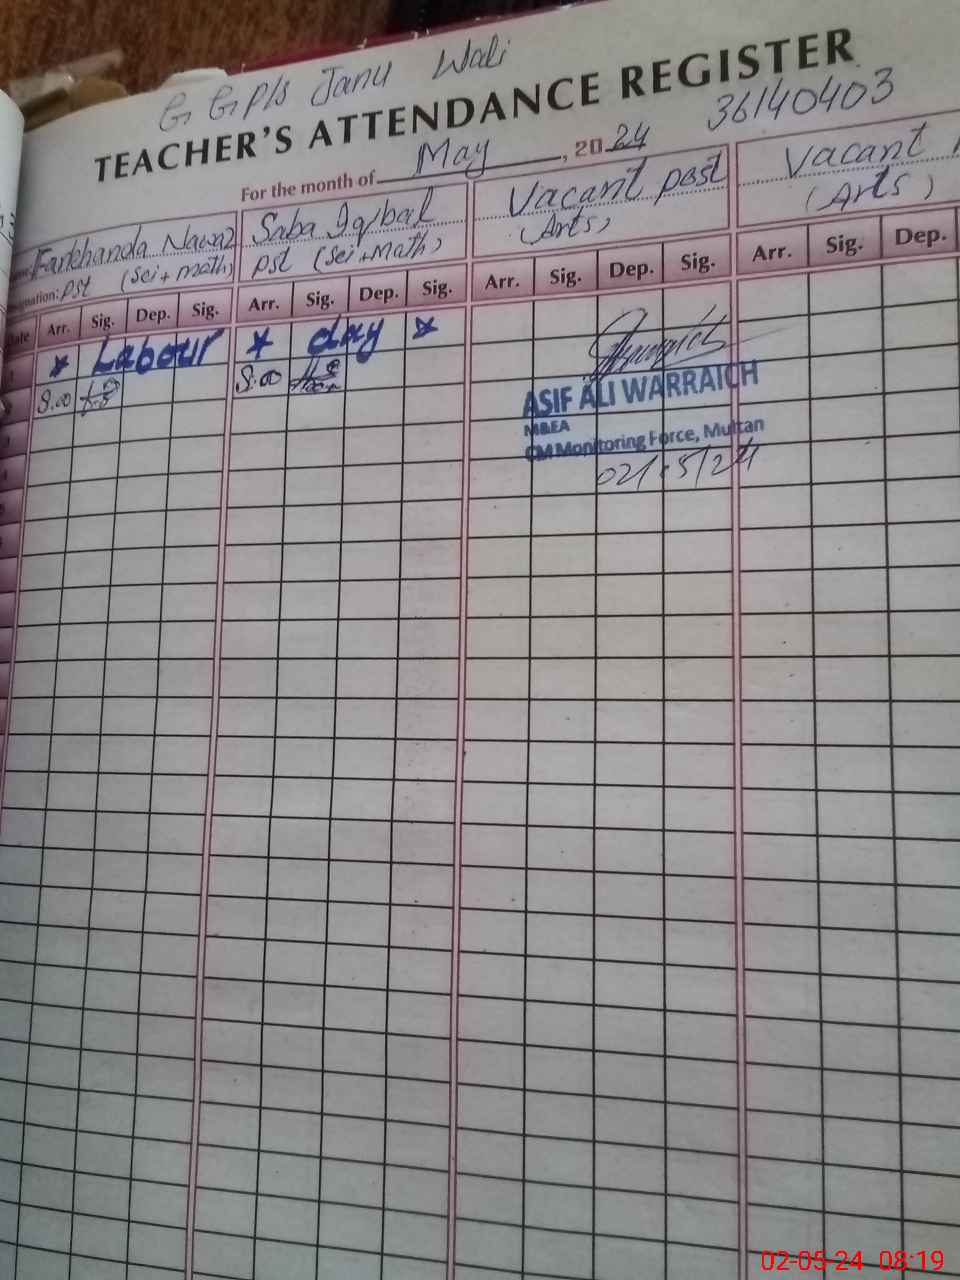 G. G. P/s Janu Wali
TEACHER'S ATTENDANCE REGISTER
36140403
For the month of May, 2024
Farkhanda Nawaz
(Sci + math)
PST
Saba Iqbal
PST (Sci + Math)
Vacant post
(Arts)
Vacant
(Arts)
Arr. Sig. Dep. Sig. Arr. Sig. Dep. Sig. Arr. Sig. Dep. Sig. Arr. Sig. Dep.
* Labour * day *
8:00 8:00
ASIF ALI WARRAICH
M&EA
CM Monitoring Force, Multan
02/05/24
02-05-24 08:19